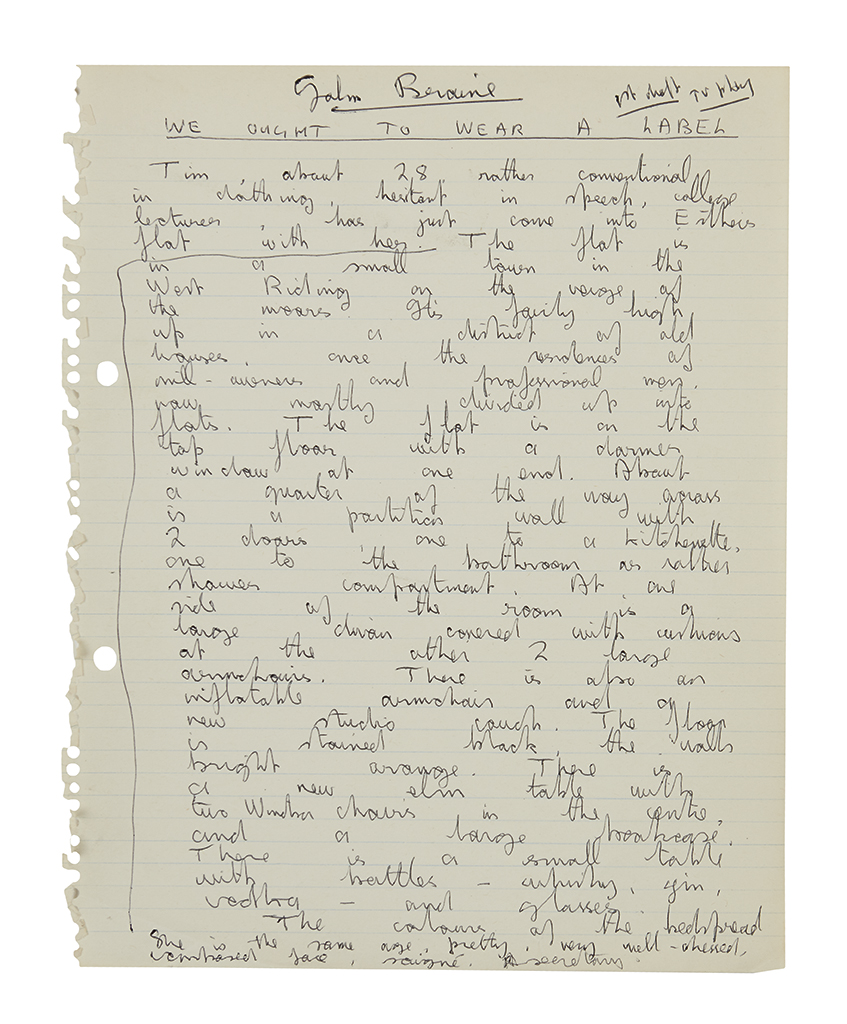 John Braine
1st draft TV play
WE OUGHT TO WEAR A LABEL
Tim, about 28, rather conventional
in clothing, hesitant in speech, college
lecturer, has just come into Esthers
flat with her. The flat is
in a small town in the
West Riding on the verge of
the moors. Its fairly high
up in a district of old
houses, once the residences of
mill-owners and professional men,
now mostly divided up into
flats. The flat is on the
top floor with a dormer
window at one end. About
a quarter of the way across
is a partition wall with
2 doors, one to a kitchenette,
one to the bathroom or rather
shower compartment. At one
side of the room is a
large divan covered with cushions
at the other 2 large
armchairs. There is also an
inflatable armchair and a
new studio couch. The floor
is stained black, the walls
bright orange. There is
a new elm table with
two Windsor chairs in the centre,
and a large bookcase.
There is a small table
with bottles - whisky, gin,
vodka - and glasses.
The colours of the bedspread
She is the same age, pretty, very well-dressed,
composed face, soigné. secretary.